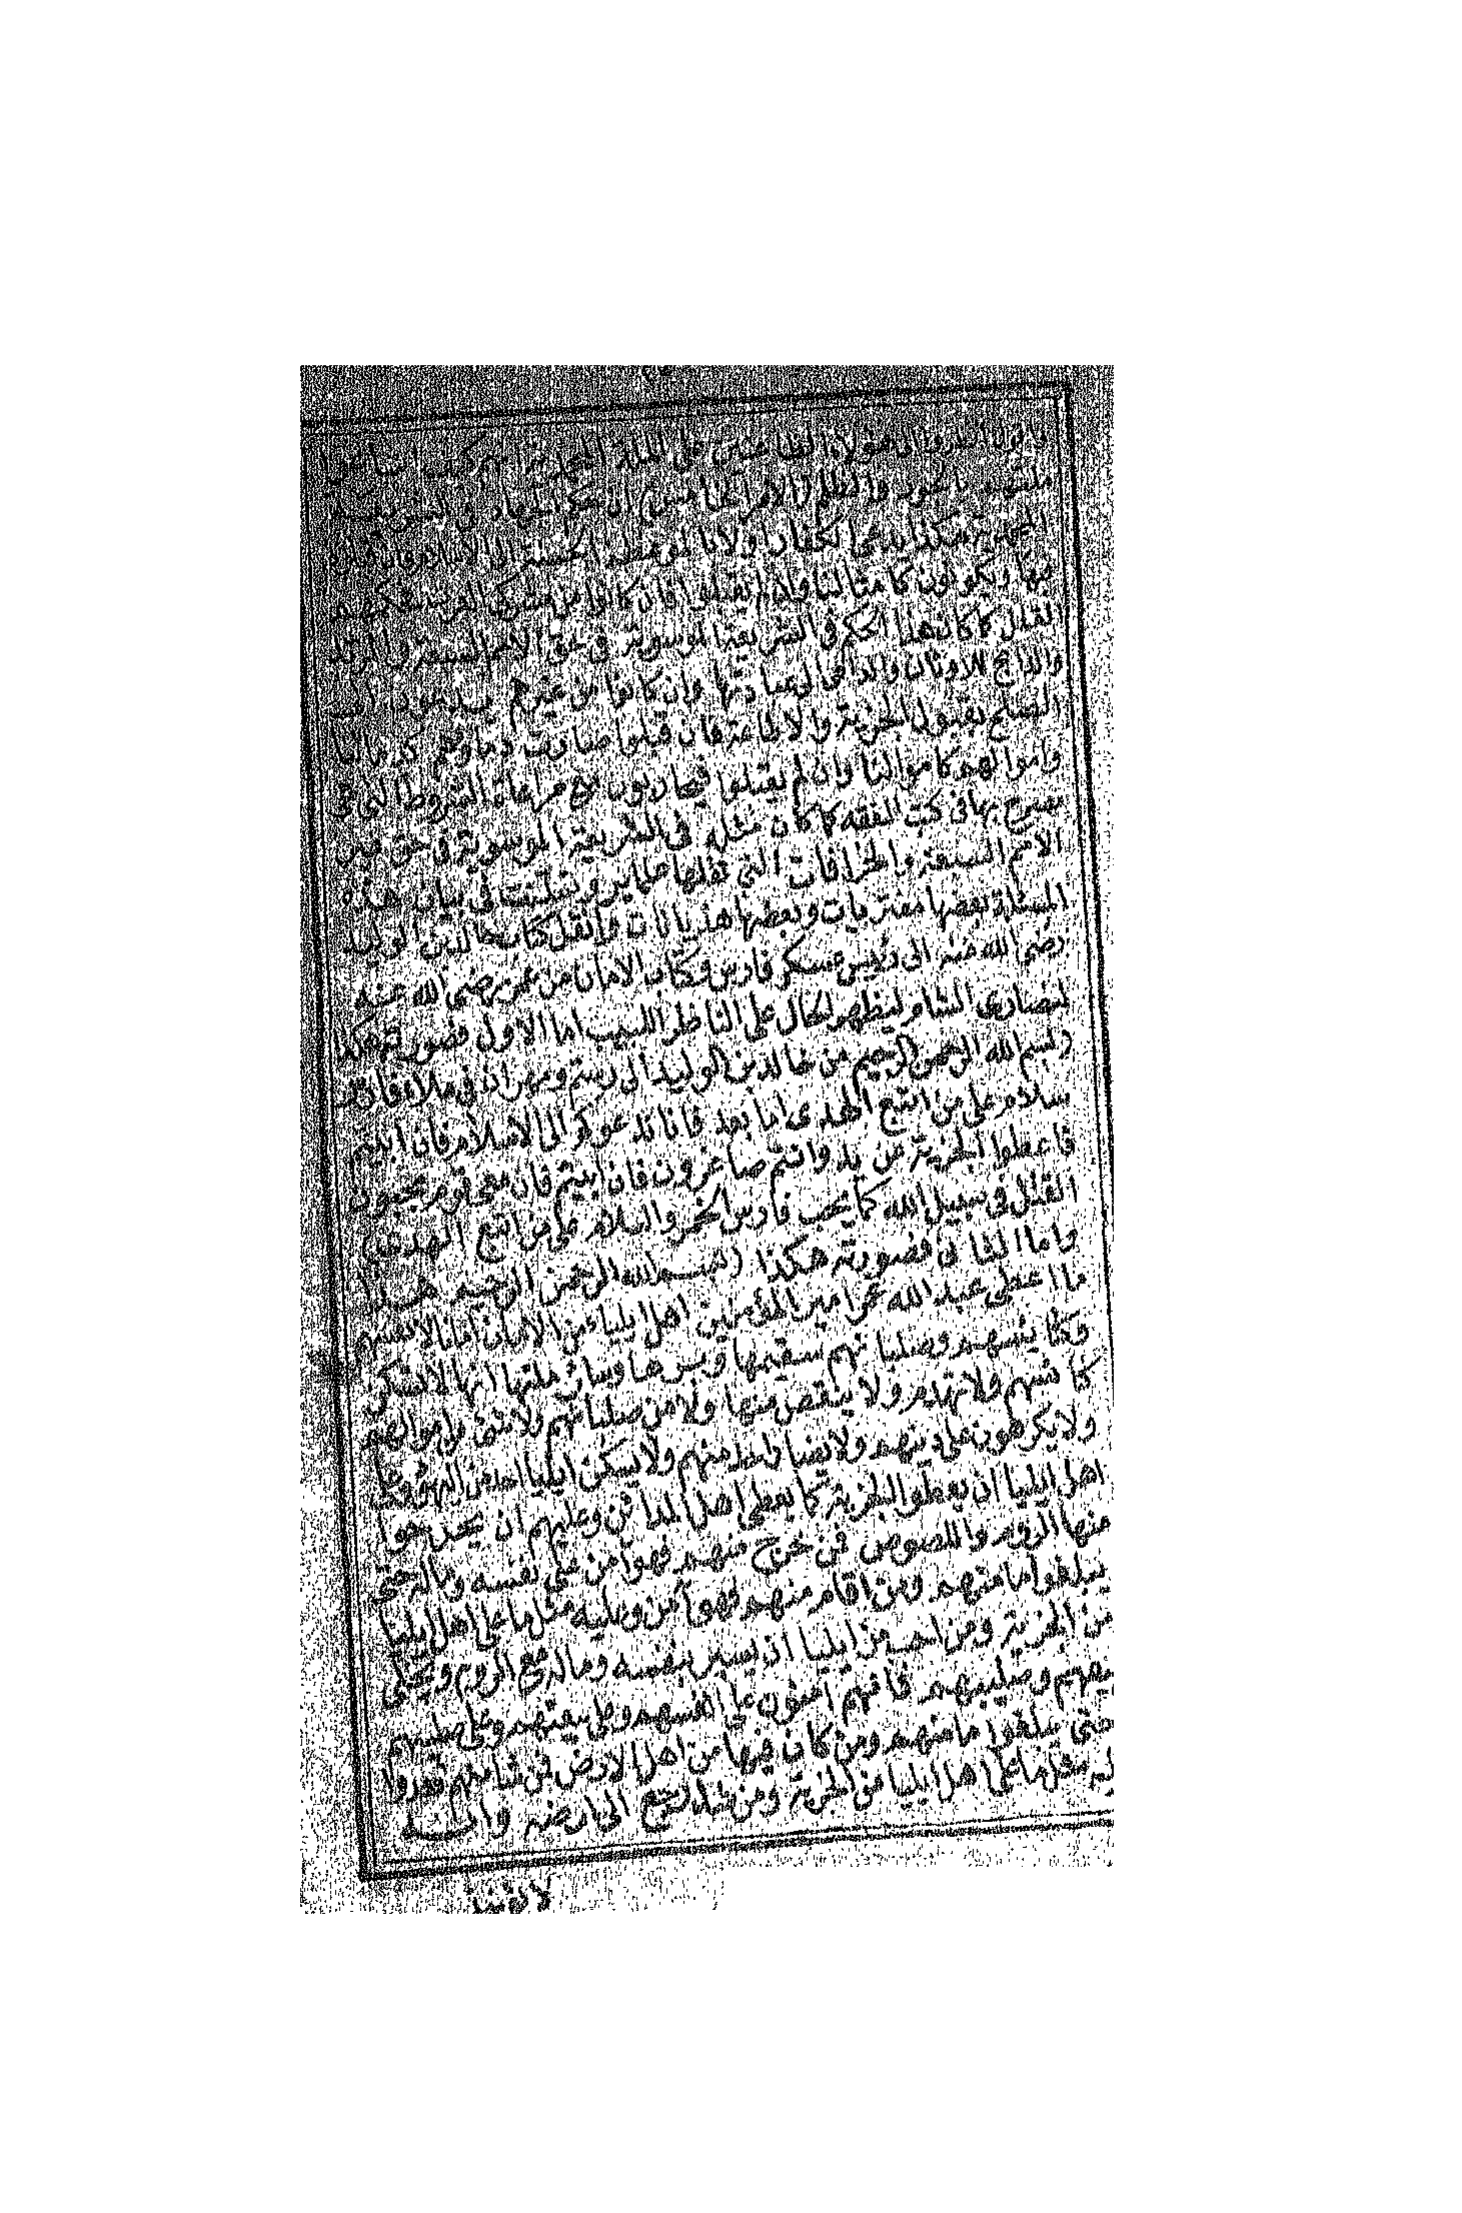 هؤلاء الطاعنين على الملة المحمدية
الامر الخامس ان حكم الجهاد في الشريعة
المحمدية هكذا يدعى الكفار اولا بالموعظة الحسنة الى الاسلام فان قبلوا
فبها ويكونون كامثالنا وان لم يقبلوا فان كانوا من مشركى العرب فحكمهم
القتل كما كان هذا الحكم فى الشريعة الموسوية فى حق الامم السبعة والمرتد
والذابح للاوثان والداعى الى عبادتها وان كانوا من غيرهم يدعون الى
الصلح بقبول الجزية والاطاعة فان قبلوا صارت دماؤهم كدمائنا
واموالهم كاموالنا وان لم يقبلوا فيحاربون مع مراعاة الشروط التى
صرح بها فى كتب الفقه كما كان مثله فى الشريعة الموسوية فى حق غير
الامم السبعة والخرافات التى نقلها علماء بروتستنت فى بيان هذه
المسئلة بعضها مفتريات وبعضها هذيانات وانقل كتاب خالد بن الوليد
رضى الله عنه الى رئيس عسكر فارس وكتاب الامان من عمر رضى الله عنه
لنصارى الشام ليظهر الحال على الناظر اللبيب اما الاول فصورته هكذا
(بسم الله الرحمن الرحيم من خالد بن الوليد الى رستم ومهران فى ملاء فارس
سلام على من اتبع الهدى اما بعد فانا ندعوكم الى الاسلام فان ابيتم
فاعطوا الجزية عن يد وانتم صاغرون فان ابيتم فان معى قوم يحبون
القتل فى سبيل الله كما يحب فارس الخمر والسلام على من اتبع الهدى)
واما الثانى فصورته هكذا (بسم الله الرحمن الرحيم هذا
ما اعطى عبد الله عمر امير المؤمنين اهل ايلياء من الامان امانا لانفسهم
وكنائسهم وصلبانهم سقيمها وبريها وسائر ملتها انها لا تسكن
كنائسهم ولا تهدم ولا ينقص منها ولا من صلبانهم ولا شئ من اموالهم
ولا يكرهون على دينهم ولا يضار احد منهم ولا يسكن ايليا احد من اليهود وعلى
اهل ايليا ان يعطوا الجزية كما يعطى اهل المدائن وعليهم ان يخرجوا
منها الروم واللصوص فمن خرج منهم فهو آمن على نفسه وماله حتى
يبلغوا مامنهم ومن اقام منهم فهو آمن وعليه مثل ما على اهل ايليا
من الجزية ومن احب من ايليا ان يسير بنفسه وماله مع الروم ويخلى
بيعهم وصليبهم فانهم آمنون على انفسهم وعلى بيعتهم وعلى صليبهم
حتى يبلغوا مامنهم ومن كان فيها من اهل الارض فمن شاء منهم قعدوا
عليه مثل ما على اهل ايليا من الجزية ومن شاء رجع الى ارضه وانه
لا يؤخذ